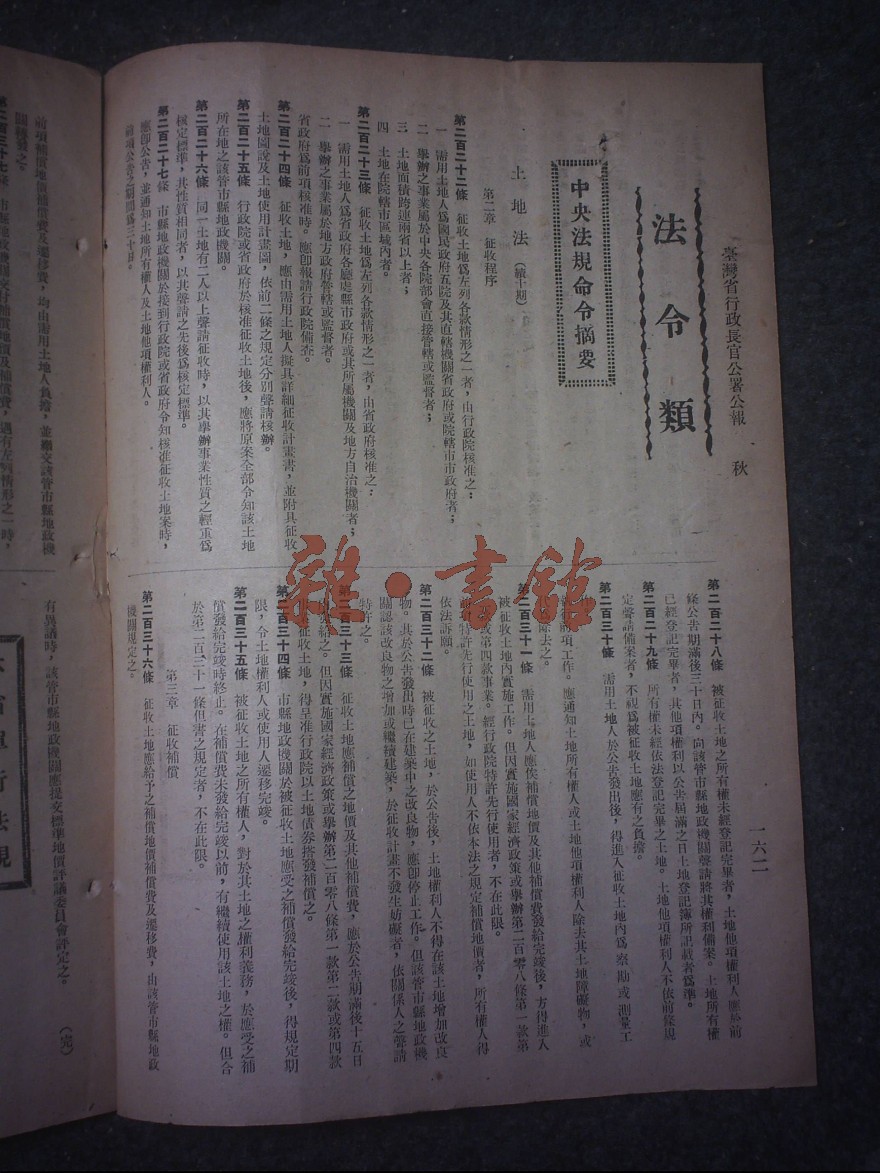 臺灣省行政長官公署公報　秋
一六二
法令類
中央法規命令摘要
土地法（續十期）
第二章　征收程序
第二百二十二條　征收土地爲左列各款情形之一者，由行政院核准之：
一　需用土地人爲國民政府五院及其直轄機關省政府或院轄市市政府者；
二　舉辦之事業屬於中央各院部會直接管轄或監督者；
三　土地面積跨連兩省以上者；
四　土地在院轄市區域內者。
第二百二十三條　征收土地爲左列各款情形之一者，由省政府核准之：
一　需用土地人爲省政府各廳處縣市政府或其所屬機關及地方自治機關者；
二　舉辦之事業屬於地方政府管轄或監督者。
省政府爲前項核准時。應卽報請行政院備查。
第二百二十四條　征收土地，應由需用土地人擬具詳細征收計畫書，並附具征收
土地圖說及土地使用計畫圖，依前二條之規定分別聲請核辦。
第二百二十五條　行政院或省政府於核准征收土地後，應將原案全部令知該土地
所在地之該管市縣地政機關。
第二百二十六條　同一土地有二人以上聲請征收時，以其舉辦事業性質之輕重爲
核定標準，其性質相同者，以其聲請之先後爲核定標準。
第二百二十七條　市縣地政機關於接到行政院或省政府令知核准征收土地案時，
應卽公告，並通知土地所有權人及土地他項權利人。
前項公告之期間爲三十日。
第二百二十八條　被征收土地之所有權未經登記完畢者，土地他項權利人應於前
條公告期滿後三十日內。向該管市縣地政機關聲請將其權利備案。土地所有權
已經登記完畢者，其他項權利以公告屆滿之日土地登記簿所記載者爲準。
第二百二十九條　所有權未經依法登記完畢之土地。土地他項權利人不依前條規
定聲請備案者，不視爲被征收土地應有之負擔。
第二百三十條　需用土地人於公告發出後，得進入征收土地內爲察勘或測量工
前項工作。應通知土地所有權人或土地他項權利人除去其土地障礙物，或
除去之。
第二百三十一條　需用土地人應俟補償地價及其他補償費發給完竣後，方得進入
被征收土地內實施工作。但因實施國家經濟政策或舉辦第二百零八條第一款第
或第四款事業。經行政院特許先行使用者，不在此限。
特許先行使用之土地，如使用人不依本法之規定補償地價者，所有權人得
依法訴願。
第二百三十二條　被征收之土地，於公告後，土地權利人不得在該土地增加改良
物。其於公告發出時已在建築中之改良物，應卽停止工作。但該管市縣地政機
關認該改良物之增加或繼續建築，於征收計畫不發生妨礙者，依關係人之聲請
特許之。
第二百三十三條　征收土地應補償之地價及其他補償費，應於公告期滿後十五日
內發給之。但因實施國家經濟政策或舉辦第二百零八條第一款第二款或第四款
征收土地，得呈准行政院以土地債券搭發補償之。
第二百三十四條　市縣地政機關於被征收土地應受之補償發給完竣後，得規定期
限，令土地權利人或使用人遷移完竣。
第二百三十五條　被征收土地之所有權人，對於其土地之權利義務，於應受之補
償發給完竣時終止。在補償費未發給完竣以前，有繼續使用該土地之權。但合
於第二百三十一條但書之規定者，不在此限。
第三章　征收補償
第二百三十六條　征收土地應給予之補償地價補償費及遷移費，由該管市縣地政
機關規定之。
前項補償地價補償費及遷移費，均由需用土地人負擔，並繳交該管市縣地政機
關轉發之。
第二百三十七條　市縣地政機關交付補償地價及補償費，遇有左列情形之一時，
有異議時，該管市縣地政機關應提交標準地價評議委員會評定之。
（完）
單行法規
雜·書館